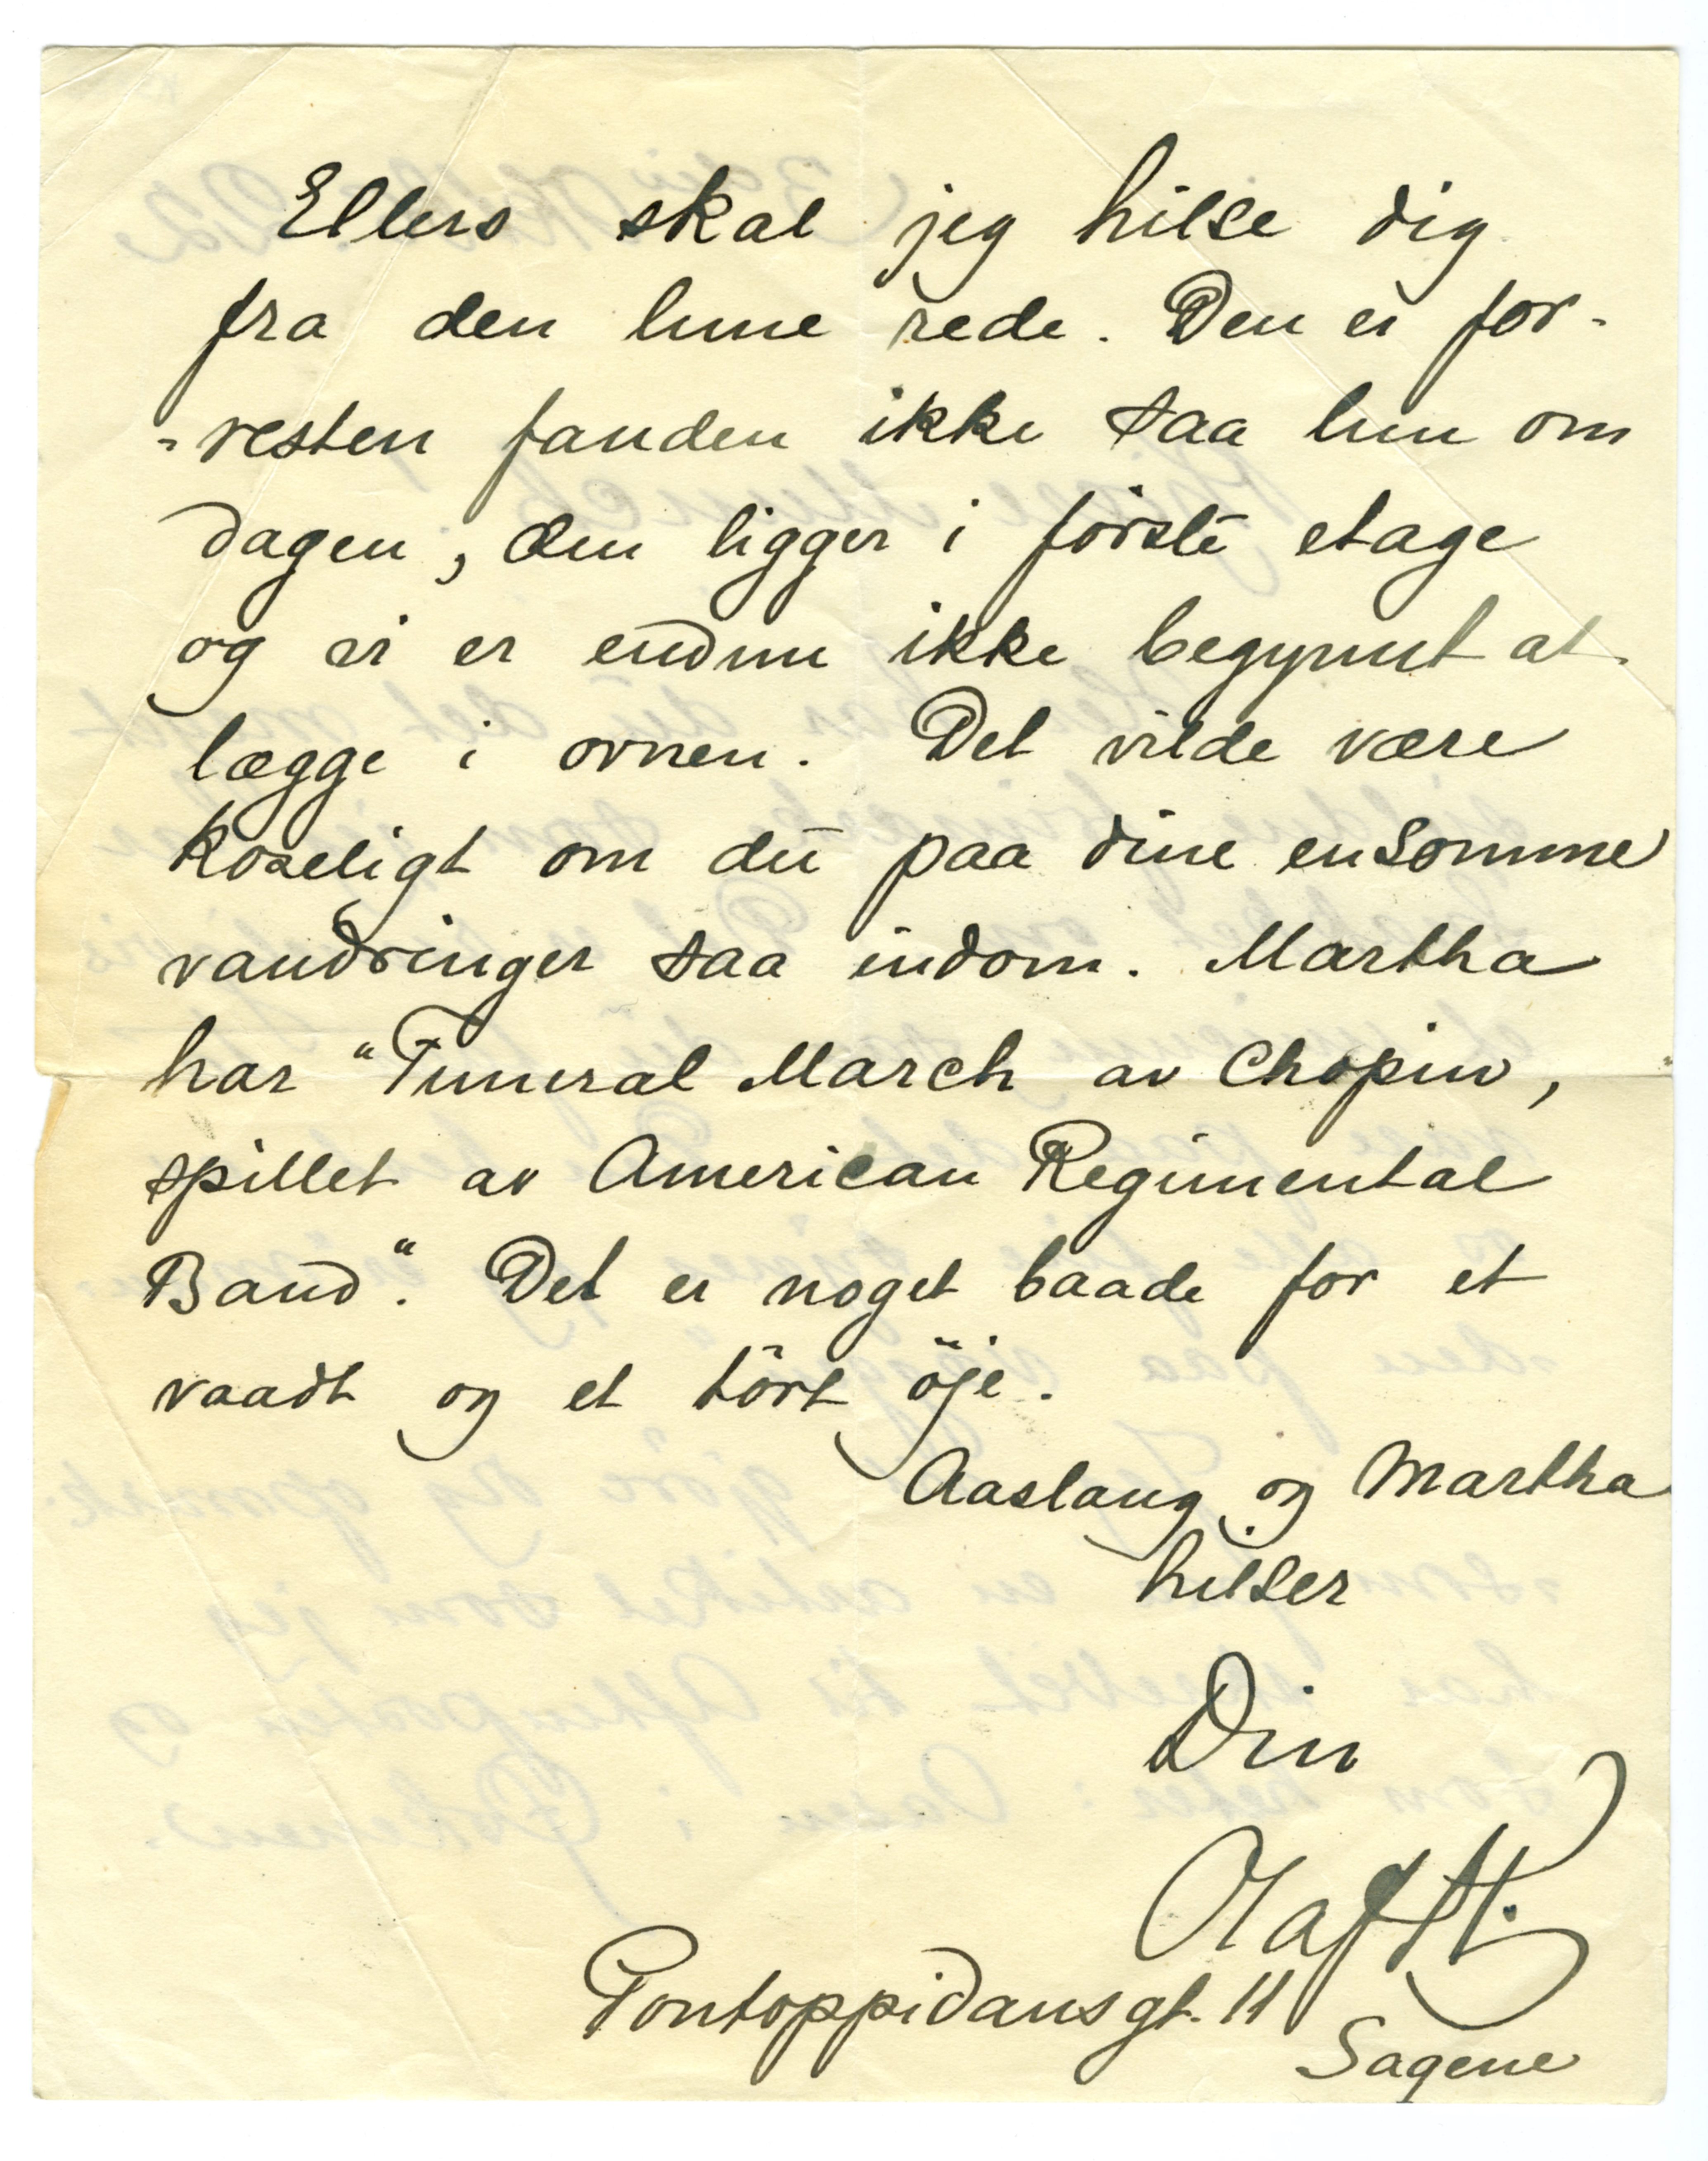 Ellers skal jeg hilse dig
fra den lune rede. Den er for-
-resten fanden ikke saa lun om
dagen, den ligger i første etage
og vi er endnu ikke begynnt at
lægge i ovnen. Det vilde være
koseligt om du paa dine ensomme
vandringer saa indom. Martha
har "Funeral March av Chopin,
spillet av American Regimental
Band". Det er noget baade for et
vaadt og et tört öje.
Aaslaug og Martha
hilser
Din
Olaf H.
Pontoppidansgt. 11
Sagene